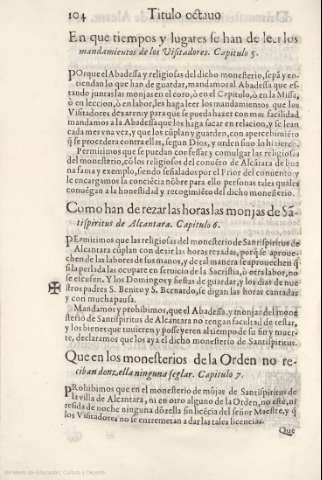 104 Titulo octauo
En que tiempos y lugares se han de leer los
mandamientos de los Visitadores. Capitulo 5.
POrque el Abadessa y religiosas del dicho monesterio, sepã y en-
tiendan lo que han de guardar, mandamos al Abadessa que es-
tando juntas las monjas en el coro, ò en el Capitulo, ò en la Missa,
ò en leccion, ò en labor, les haga leer los mandamientos que los
Visitadores dexaren, y para que se pueda hazer con mas facilidad
mandamos a la Abadessa que los haga sacar en relacion, y se lean
cada mes vna vez, y que los cũplan y guarden, con apercebimiẽto
q̃ se procedera contra ellas, segun Dios, y orden sino lo hizierẽ.
Permitimos que se puedan confessar y comulgar las religiosas
del monesterio, cõ los religiosos del conuẽto de Alcãtara de bue
na fama y exemplo, siendo señalados por el Prior del conuento y
le encargamos la conciẽcia nõbre para ello personas tales quales
conuẽgan a la honestidad y recogimiẽto del dicho monesterio.
Como han de rezar las horas las monjas de Sã-
tispiritus de Alcantara. Capitulo 6.
PErmitimos que las religiosas del monesterio de Santispiritus de
Alcantara cũplan con dezir las horas rezadas, porq̃ se aproue-
chen de las labores de sus manos, y de tal manera se aprouechen q̃
si la perlada las ocupare en seruicio de la Sacristia, ò otra labor, no
se escusen. Y los Domingos y fiestas de guardar, y los dias de nue-
stros padres S. Benito y S. Bernardo, se digan las horas cantadas
y con mucha pausa.
Mandamos y prohibimos, que el Abadessa, y monjas del mone
sterio de Santispiritus de Alcantara no tengan facultad de testar,
y los bienes que tuuieren y posseyeren al tiempo de su fin y muer-
te, declaramos que los aya el dicho monesterio de Santispiritus.
Que en los monesterios de la Orden no re-
ciban donzella ninguna seglar. Capitulo 7.
PRohibimos que en el monesterio de mõjas de Santispiritus de
la villa de Alcantara, ni en otro alguno de la Orden, no estè, ni
resida de noche ninguna dõzella sin licẽcia del señor Maestre, y q̃
los Visitadores no se entremetan a dar las tales licencias.
Que
Ministerio de Educación, Cultura y Deporte